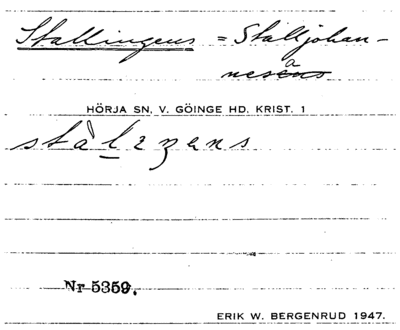 Stallingens = Stalljohan-
nesens a
HÖRJA SN, V. GÖINGE HD. KRIST. 1
Nr 5359.
ERIK W. BERGENRUD 1947.